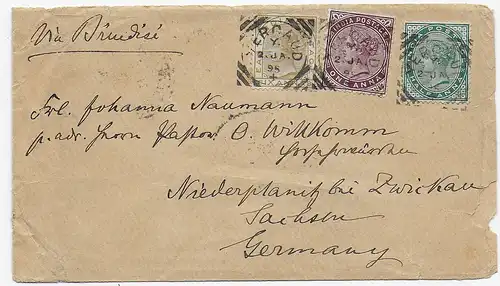 Via Brindisi
YERCAUD
Y.
2 JA.
95
INDIA POSTAGE
ONE ANNA
2 JA
2 JA
Frl. Johanna Naumann
p. adr. Herrn Pastor O. Willkomm
Niederplanitz bei Zwickau
Sachsen
Germany